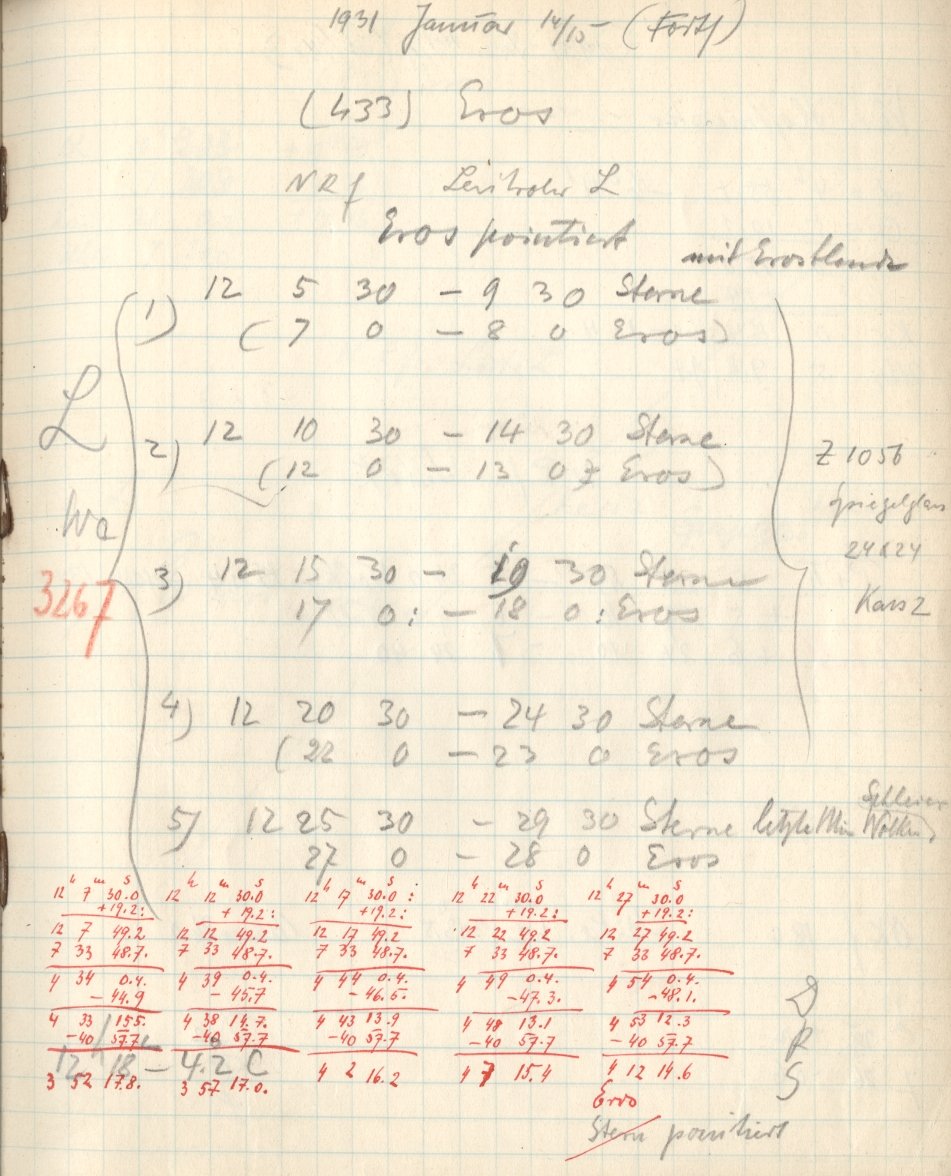 1931 Januar 14/15 - (Forts)
(433) Eros
NRf Leitrohr L
Eros pointiert
mit Erosblende
1) 12 5 30 - 9 30 Sterne
(7 0 - 8 0 Eros)
L
2) 12 10 30 - 14 30 Sterne
(12 0 - 13 0 Eros)
Z 1056
Spiegelglas
24x24
Kass 2
Wa
3267
3) 12 15 30 - 19 30 Sterne
17 0: - 18 0: Eros
4) 12 20 30 - 24 30 Sterne
(22 0 - 23 0 Eros
5) 12 25 30 - 29 30 Sterne letzte Min Schleier Wolken
27 0 - 28 0 Eros
12h 7m 30.0s 12h 12m 30.0s 12h 17m 30.0s: 12h 22m 30.0s 12h 27m 30.0s
+19.2: +19.2: +19.2: +19.2: +19.2:
12 7 49.2 12 12 49.2 12 17 49.2 12 22 49.2 12 27 49.2
7 33 48.7. 7 33 48.7. 7 33 48.7. 7 33 48.7. 7 33 48.7.
4 34 0.4. 4 39 0.4. 4 44 0.4. 4 49 0.4. 4 54 0.4.
-44.9 -45.7 -46.5. -47.3. -48.1.
4 33 15.5. 4 38 14.7. 4 43 13.9 4 48 13.1 4 53 12.3
-40 57.7 -40 57.7 -40 57.7 -40 57.7. -40 57.7
12 18 - 4.2 C
3 52 17.8. 3 57 17.0. 4 2 16.2 4 7 15.4 4 12 14.6
R
S
Eros
Stern pointiert